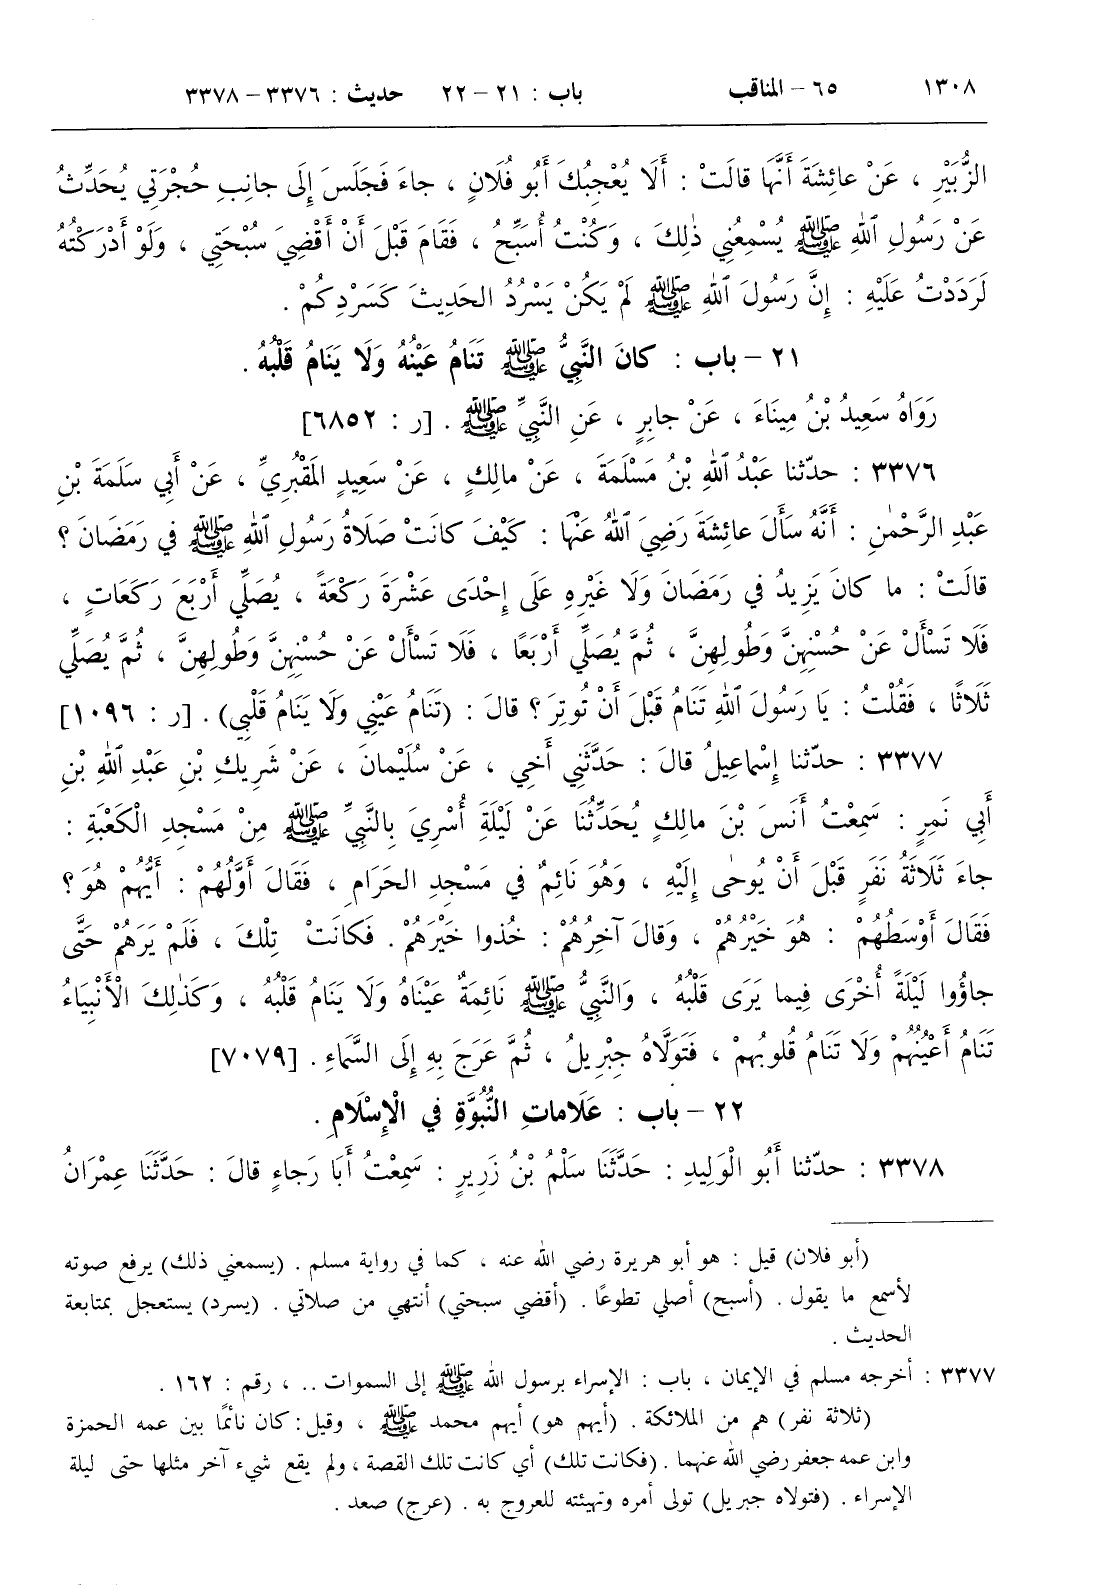 ١٣٠٨ ٦٥ – المناقب باب : ٢١ – ٢٢ حديث : ٣٣٧٦ – ٣٣٧٨
الزُّبَيْرِ ، عَنْ عائِشَةَ أَنَّهَا قالَتْ : أَلَا يُعْجِبُكَ أَبُو فُلَانٍ ، جاءَ فَجَلَسَ إِلَى جانِبِ حُجْرَتِي يُحَدِّثُ
عَنْ رَسُولِ ٱللهِ ﷺ يُسْمِعُنِي ذٰلِكَ ، وَكُنْتُ أُسَبِّحُ ، فَقَامَ قَبْلَ أَنْ أَقْضِيَ سُبْحَتِي ، وَلَوْ أَدْرَكْتُهُ
لَرَدَدْتُ عَلَيْهِ : إِنَّ رَسُولَ ٱللهِ ﷺ لَمْ يَكُنْ يَسْرُدُ الحَدِيثَ كَسَرْدِكُمْ .
٢١ – باب : كانَ النَّبِيُّ ﷺ تَنَامُ عَيْنُهُ وَلَا يَنَامُ قَلْبُهُ .
رَوَاهُ سَعِيدُ بْنُ مِينَاءَ ، عَنْ جابِرٍ ، عَنِ النَّبِيِّ ﷺ . [ر : ٦٨٥٢]
٣٣٧٦ : حدّثنا عَبْدُ ٱللهِ بْنُ مَسْلَمَةَ ، عَنْ مالِكٍ ، عَنْ سَعِيدٍ المَقْبُرِيِّ ، عَنْ أَبِي سَلَمَةَ بْنِ
عَبْدِ الرَّحْمٰنِ : أَنَّهُ سَأَلَ عائِشَةَ رَضِيَ ٱللهُ عَنْهَا : كَيْفَ كانَتْ صَلَاةُ رَسُولِ ٱللهِ ﷺ في رَمَضَانَ ؟
قالَتْ : ما كانَ يَزِيدُ في رَمَضَانَ وَلَا غَيْرِهِ عَلَى إِحْدَى عَشْرَةَ رَكْعَةً ، يُصَلِّي أَرْبَعَ رَكَعَاتٍ ،
فَلَا تَسْأَلْ عَنْ حُسْنِهِنَّ وَطُولِهِنَّ ، ثُمَّ يُصَلِّي أَرْبَعًا ، فَلَا تَسْأَلْ عَنْ حُسْنِهِنَّ وَطُولِهِنَّ ، ثُمَّ يُصَلِّي
ثَلَاثًا ، فَقُلْتُ : يَا رَسُولَ ٱللهِ تَنَامُ قَبْلَ أَنْ تُوتِرَ ؟ قالَ : (تَنَامُ عَيْنِي وَلَا يَنَامُ قَلْبِي) . [ر : ١٠٩٦]
٣٣٧٧ : حدّثنا إِسْمَاعِيلُ قالَ : حَدَّثَنِي أَخِي ، عَنْ سُلَيْمانَ ، عَنْ شَرِيكِ بْنِ عَبْدِ ٱللهِ بْنِ
أَبِي نَمِرٍ : سَمِعْتُ أَنَسَ بْنَ مالِكٍ يُحَدِّثُنَا عَنْ لَيْلَةَ أُسْرِيَ بِالنَّبِيِّ ﷺ مِنْ مَسْجِدِ الْكَعْبَةِ :
جاءَ ثَلَاثَةُ نَفَرٍ قَبْلَ أَنْ يُوحٰى إِلَيْهِ ، وَهُوَ نَائِمٌ في مَسْجِدِ الحَرَامِ ، فَقَالَ أَوَّلُهُمْ : أَيُّهُمْ هُوَ ؟
فَقَالَ أَوْسَطُهُمْ : هُوَ خَيْرُهُمْ ، وَقالَ آخِرُهُمْ : خُذوا خَيْرَهُمْ . فَكانَتْ تِلْكَ ، فَلَمْ يَرَهُمْ حَتَّى
جاؤُوا لَيْلَةً أُخْرَى فِيما يَرَى قَلْبُهُ ، وَالنَّبِيُّ ﷺ نَائِمَةٌ عَيْنَاهُ وَلَا يَنَامُ قَلْبُهُ ، وَكَذٰلِكَ الْأَنْبِيَاءُ
تَنَامُ أَعْيُنُهُمْ وَلَا تَنَامُ قُلوبُهمْ ، فَتَوَلَّاهُ جِبْرِيلُ ، ثُمَّ عَرَجَ بِهِ إِلَى السَّمَاءِ . [٧٠٧٩]
٢٢ – باب : عَلَامَاتِ النُّبُوَّةِ في الْإِسْلَامِ .
٣٣٧٨ : حدّثنا أَبُو الْوَلِيدِ : حَدَّثَنَا سَلْمُ بْنُ زَرِيرٍ : سَمِعْتُ أَبَا رَجاءٍ قالَ : حَدَّثَنَا عِمْرَانُ
(أبو فلان) قيل : هو أبو هريرة رضي الله عنه ، كما في رواية مسلم . (يسمعني ذلك) يرفع صوته
لأسمع ما يقول . (أسبح) أصلي تطوعًا . (أقضي سبحتي) أنتهي من صلاتي . (يسرد) يستعجل بمتابعة
الحديث .
٣٣٧٧ : أخرجه مسلم في الإيمان ، باب : الإسراء برسول الله ﷺ إلى السموات .. ، رقم : ١٦٢ .
(ثلاثة نفر) هم من الملائكة . (أيهم هو) أيهم محمد ﷺ ، وقيل : كان نائمًا بين عمه الحمزة
وابن عمه جعفر رضي الله عنهما . (فكانت تلك) أي كانت تلك القصة ، ولم يقع شيء آخر مثلها حتى ليلة
الإسراء . (فتولاه جبريل) تولى أمره وتهيئته للعروج به . (عرج) صعد .